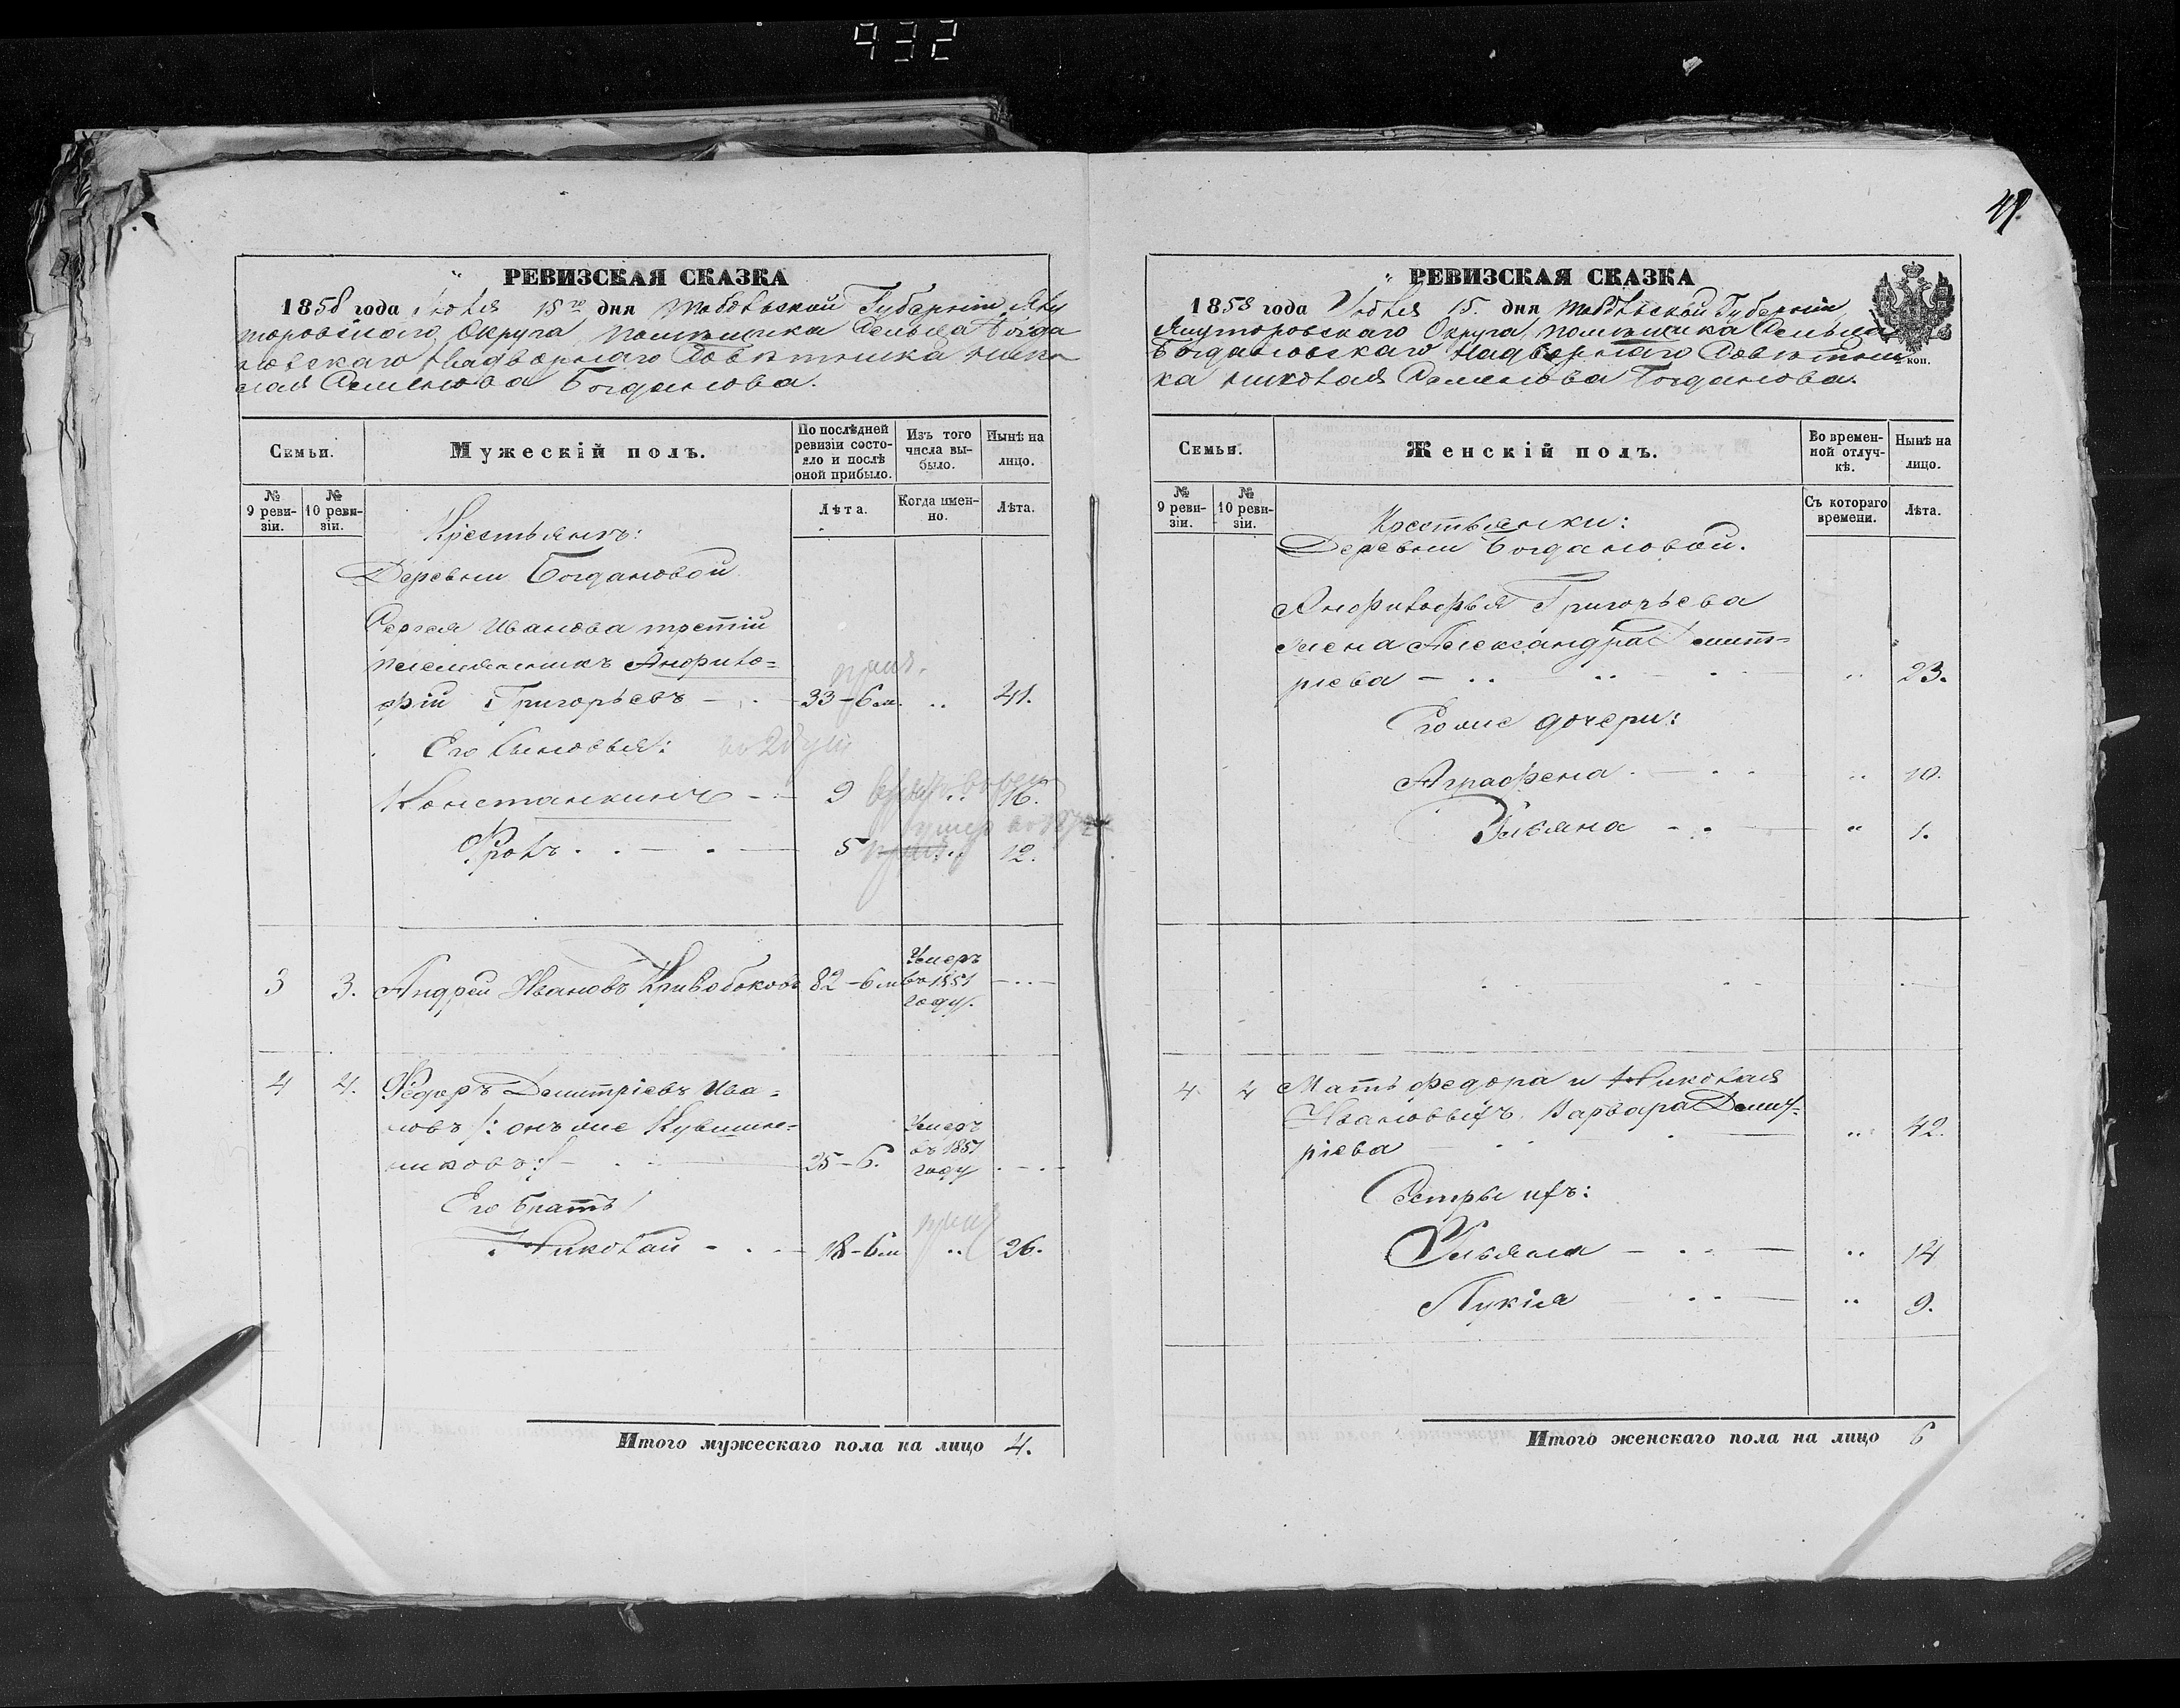 932
41.
РЕВИЗСКАЯ СКАЗКА
1858 года Іюля 15го дня Тобольской Губерніи Ялу
торовскаго Округа, помѣщика Сельца Богда
новскаго Надворнаго Совѣтника Нико
лая Семенова Богданова.
Семьи.
Мужескій полъ.
По послѣдней
ревизіи состо-
яло и послѣ
оной прибыло.
Изъ того
числа вы-
было.
Нынѣ на
лицо.
№
9 реви-
зіи.
№
10 реви-
зіи.
Лѣта.
Когда имен-
но.
Лѣта.
Крестьянъ:
Деревни Богдановой
Сергея Иванова третій
племянникъ Анфило-
фій Григорьевъ 33-6м. " 41.
Его сыновья:
Константинъ 9 " 16.
Фролъ 5 " 12.
3 3. Андрей Ивановъ Кривобоковъ 82-6м
Умеръ
въ 1851
году.
4 4. Федоръ Дмитріевъ Ива-
новъ /: онъ же Кувшин-
никовъ :/ 25-6.
Умеръ
въ 1851
году
Его братъ
Николай 18-6м " 26.
Итого мужескаго пола на лицо 4.
РЕВИЗСКАЯ СКАЗКА
1858 года Іюля 15. дня Тобольской Губерніи
Ялуторовскаго Округа, помѣщика Сельца
Богдановскаго Надворнаго Совѣтни
ка Николая Семенова Богданова.
коп.
Семьи.
Женскій полъ.
Во времен-
ной отлуч-
кѣ.
Нынѣ на
лицо.
№
9 реви-
зіи.
№
10 реви-
зіи.
Съ котораго
времени.
Лѣта.
Крестьянки:
Деревни Богдановой.
Анфилофья Григорьева
жена Александра Дмит-
ріева " 23.
Его же дочери:
Аграфена " 10.
" 1.
4 4 Мать Федора и Николая
Ивановыхъ Варвара Дмит-
ріева " 42.
Сестры ихъ:
Ульяна " 14
Лукія " 9.
Итого женскаго пола на лицо 6